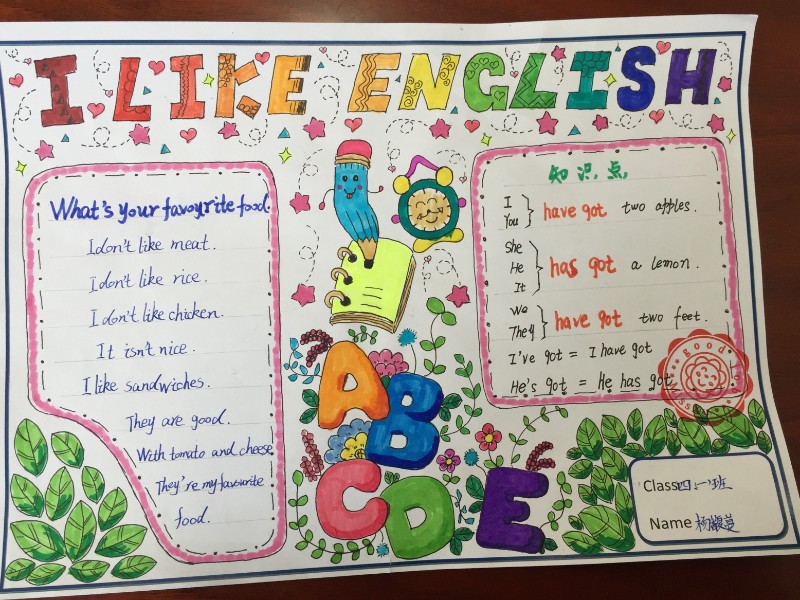 I LIKE ENGLISH
What's your favourite food
I don't like meat.
I don't like rice.
I don't like chicken.
It isn't nice.
I like sandwiches.
They are good.
With tomato and cheese
They're my favourite
food.
知识点
I
You
have got two apples.
She
He
It
has got a lemon.
We
They
have got two feet.
I've got = I have got
He's got = He has got
good
A
B
C
D
E
Class 四.一班
Name 杨